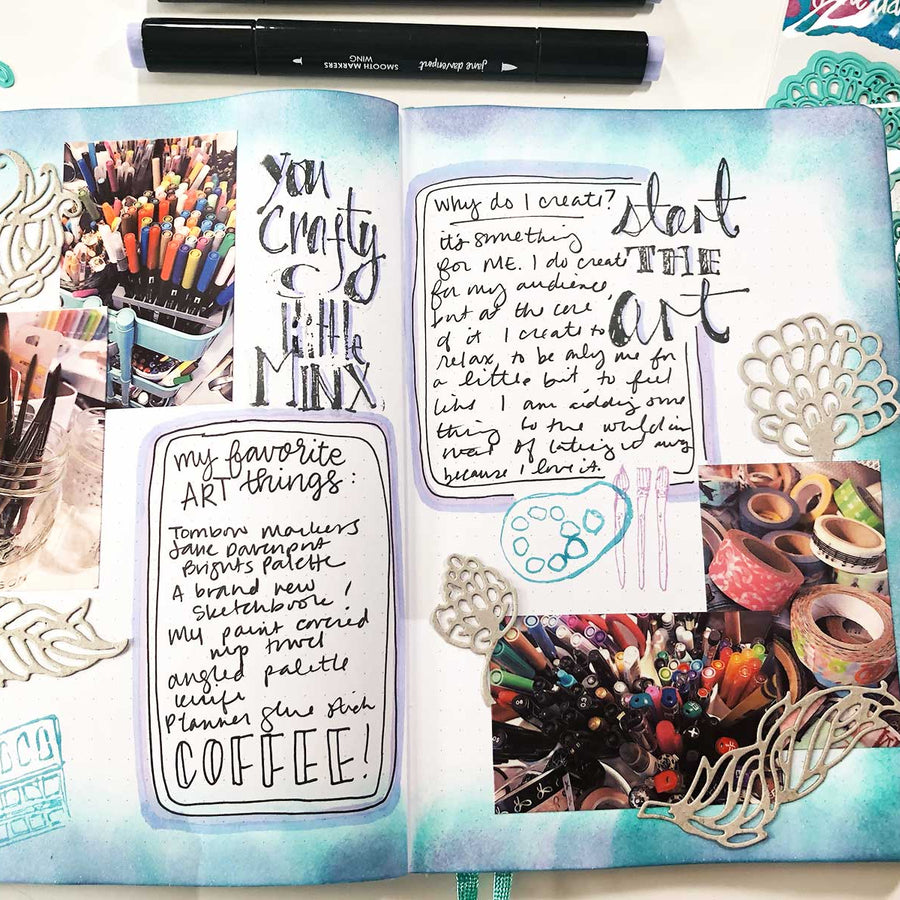 jane davenport
SMOOTH MARKERS
WING
you
Crafty
little
MINX
my favorite
ART things:
Tombow markers
Jane Davenport
Brights palette
A brand new
sketchbook!
My paint covered
mop towel
angled palette
knife
Planner glue stick
COFFEE!
Why do I create?
it's something
for ME. I do create
for my audience,
but at the core
of it I create to
relax, to be only me for
a little bit to feel
like I am adding some
thing to the world in
stead of taking away
because I love it.
start
THE
art